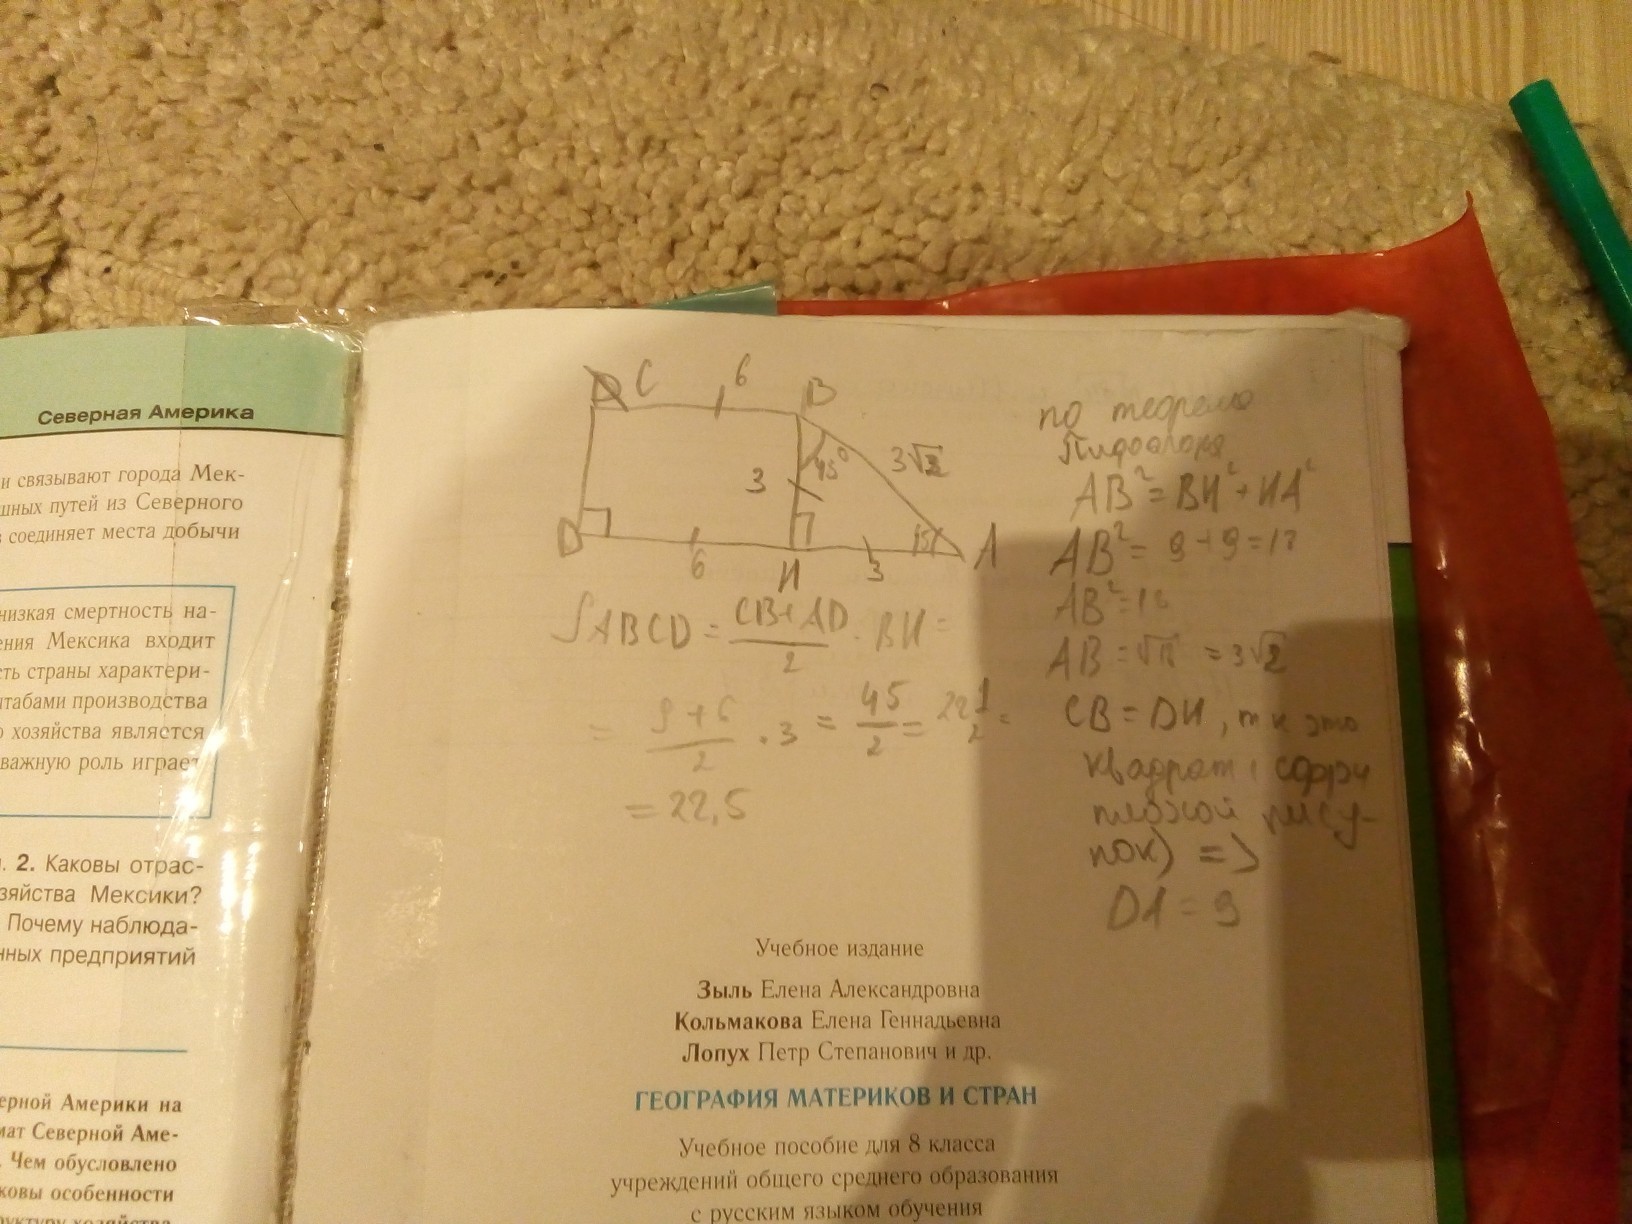 Северная Америка
и связывают города Мек-
шных путей из Северного
в соединяет места добычи
низкая смертность на-
ения Мексика входит
сть страны характери-
штабами производства
о хозяйства является
важную роль играет
2. Каковы отрас-
зяйства Мексики?
Почему наблюда-
нных предприятий
ерной Америки на
мат Северной Аме-
. Чем обусловлено
ковы особенности
C 6 B
3 45° 3√2
D 6 H 3 A
SABCD = CB+AD / 2 · BH =
= 9+6 / 2 · 3 = 45 / 2 = 22 1/2 =
= 22,5
по теореме
AB² = BH² + HA²
AB² = 9+9=18
AB²=18
AB = √18 = 3√2
CB = DH, т к это
квадрат
плохой рису-
нок) =>
DA = 9
Учебное издание
Зыль Елена Александровна
Кольмакова Елена Геннадьевна
Лопух Петр Степанович и др.
ГЕОГРАФИЯ МАТЕРИКОВ И СТРАН
Учебное пособие для 8 класса
учреждений общего среднего образования
с русским языком обучения